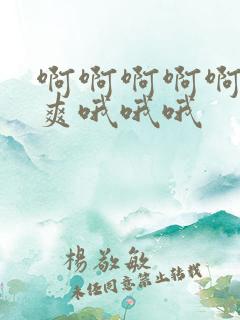 啊啊啊啊啊
爽哦哦哦
楊敬敏
未经同意禁止转载